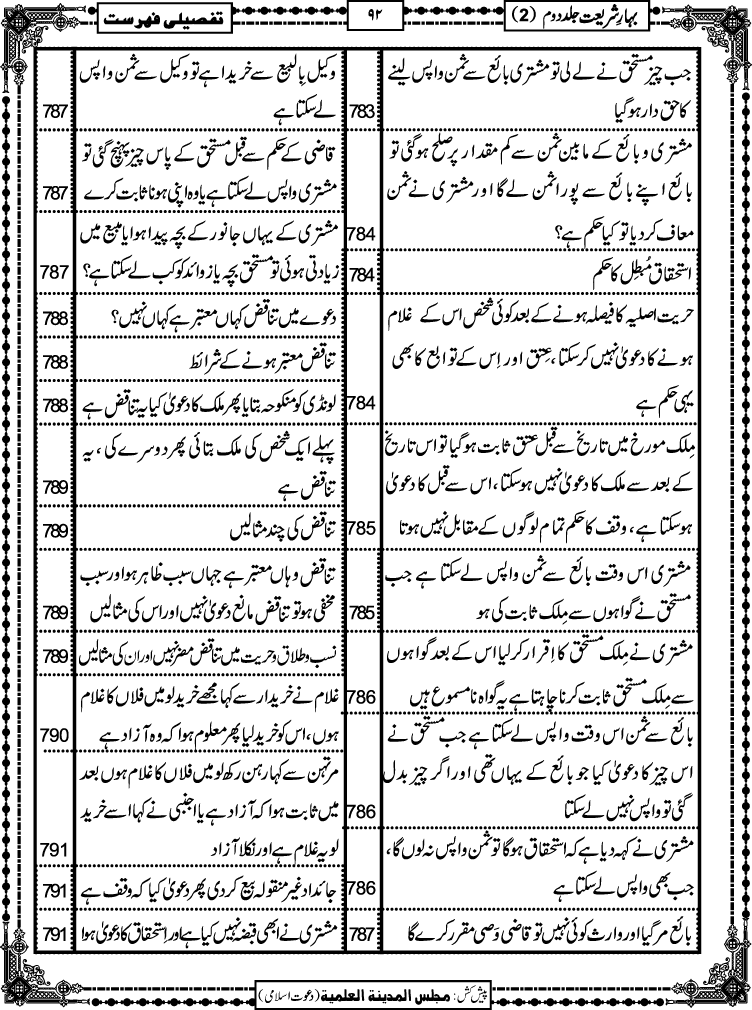 بہارِ شریعت جلد دوم (2)
۹۲
تفصیلی فہرست
جب چیز مستحق نے لے لی تو مشتری بائع سے ثمن واپس لینے
کا حق دار ہوگیا 783
مشتری و بائع کے مابین ثمن سے کم مقدار پر صلح ہوگئی تو
بائع اپنے بائع سے پورا ثمن لے گا اور مشتری نے ثمن
معاف کردیا تو کیا حکم ہے؟ 784
استحقاق مُبطِل کا حکم 784
حریت اصلیہ کا فیصلہ ہونے کے بعد کوئی شخص اس کے غلام
ہونے کا دعویٰ نہیں کرسکتا، عِتق اور اِس کے توابع کا بھی
یہی حکم ہے 784
مِلک مورخ میں تاریخ سے قبل عتق ثابت ہوگیا تو اس تاریخ
کے بعد سے ملک کا دعویٰ نہیں ہوسکتا، اس سے قبل کا دعویٰ
ہوسکتا ہے، وقف کا حکم تمام لوگوں کے مقابل نہیں ہوتا 785
مشتری اس وقت بائع سے ثمن واپس لے سکتا ہے جب
مستحق نے گواہوں سے مِلک ثابت کی ہو 785
مشتری نے مِلک مستحق کا اِقرار کرلیا اس کے بعد گواہوں
سے مِلک مستحق ثابت کرنا چاہتا ہے یہ گواہ نامسموع ہیں 786
بائع سے ثمن اس وقت واپس لے سکتا ہے جب مستحق نے
اس چیز کا دعویٰ کیا جو بائع کے یہاں تھی اور اگر چیز بدل
گئی تو واپس نہیں لے سکتا 786
مشتری نے کہہ دیا ہے کہ استحقاق ہوگا تو ثمن واپس نہ لوں گا،
جب بھی واپس لے سکتا ہے 786
بائع مرگیا اور وارث کوئی نہیں تو قاضی وَصی مقرر کرے گا 787
وکیل بِالبیع سے خریدا ہے تو وکیل سے ثمن واپس
لے سکتا ہے 787
قاضی کے حکم سے قبل مستحق کے پاس چیز پہنچ گئی تو
مشتری واپس لے سکتا ہے یا وہ اپنی ہونا ثابت کرے 787
مشتری کے یہاں جانور کے بچہ پیدا ہوا یا مبیع میں
زیادتی ہوئی تو مستحق بچہ یا زوائد کو کب لے سکتا ہے؟ 787
دعوے میں تناقض کہاں معتبر ہے کہاں نہیں؟ 788
تناقض معتبر ہونے کے شرائط 788
لونڈی کو منکوحہ بتایا پھر ملک کا دعویٰ کیا یہ تناقض ہے 788
پہلے ایک شخص کی ملک بتائی پھر دوسرے کی، یہ
تناقض ہے 789
تناقض کی چند مثالیں 789
تناقض وہاں معتبر ہے جہاں سبب ظاہر ہو اور سبب
مخفی ہو تو تناقض مانع دعویٰ نہیں اور اس کی مثالیں 789
نسب و طلاق و حریت میں تناقض مضر نہیں اور ان کی مثالیں 789
غلام نے خریدار سے کہا مجھے خرید لو میں فلاں کا غلام
ہوں، اس کو خرید لیا پھر معلوم ہوا کہ وہ آزاد ہے 790
مرتہن سے کہا رہن رکھ لو میں فلاں کا غلام ہوں بعد
میں ثابت ہوا کہ آزاد ہے یا اجنبی نے کہا اسے خرید
لو یہ غلام ہے اور نکلا آزاد 791
جائداد غیر منقولہ بیع کردی پھر دعویٰ کیا کہ وقف ہے 791
مشتری نے ابھی قبضہ نہیں کیا ہے اور اِستحقاق کا دعویٰ ہوا 791
پیش کش: مجلس المدینۃ العلمیۃ (دعوت اسلامی)